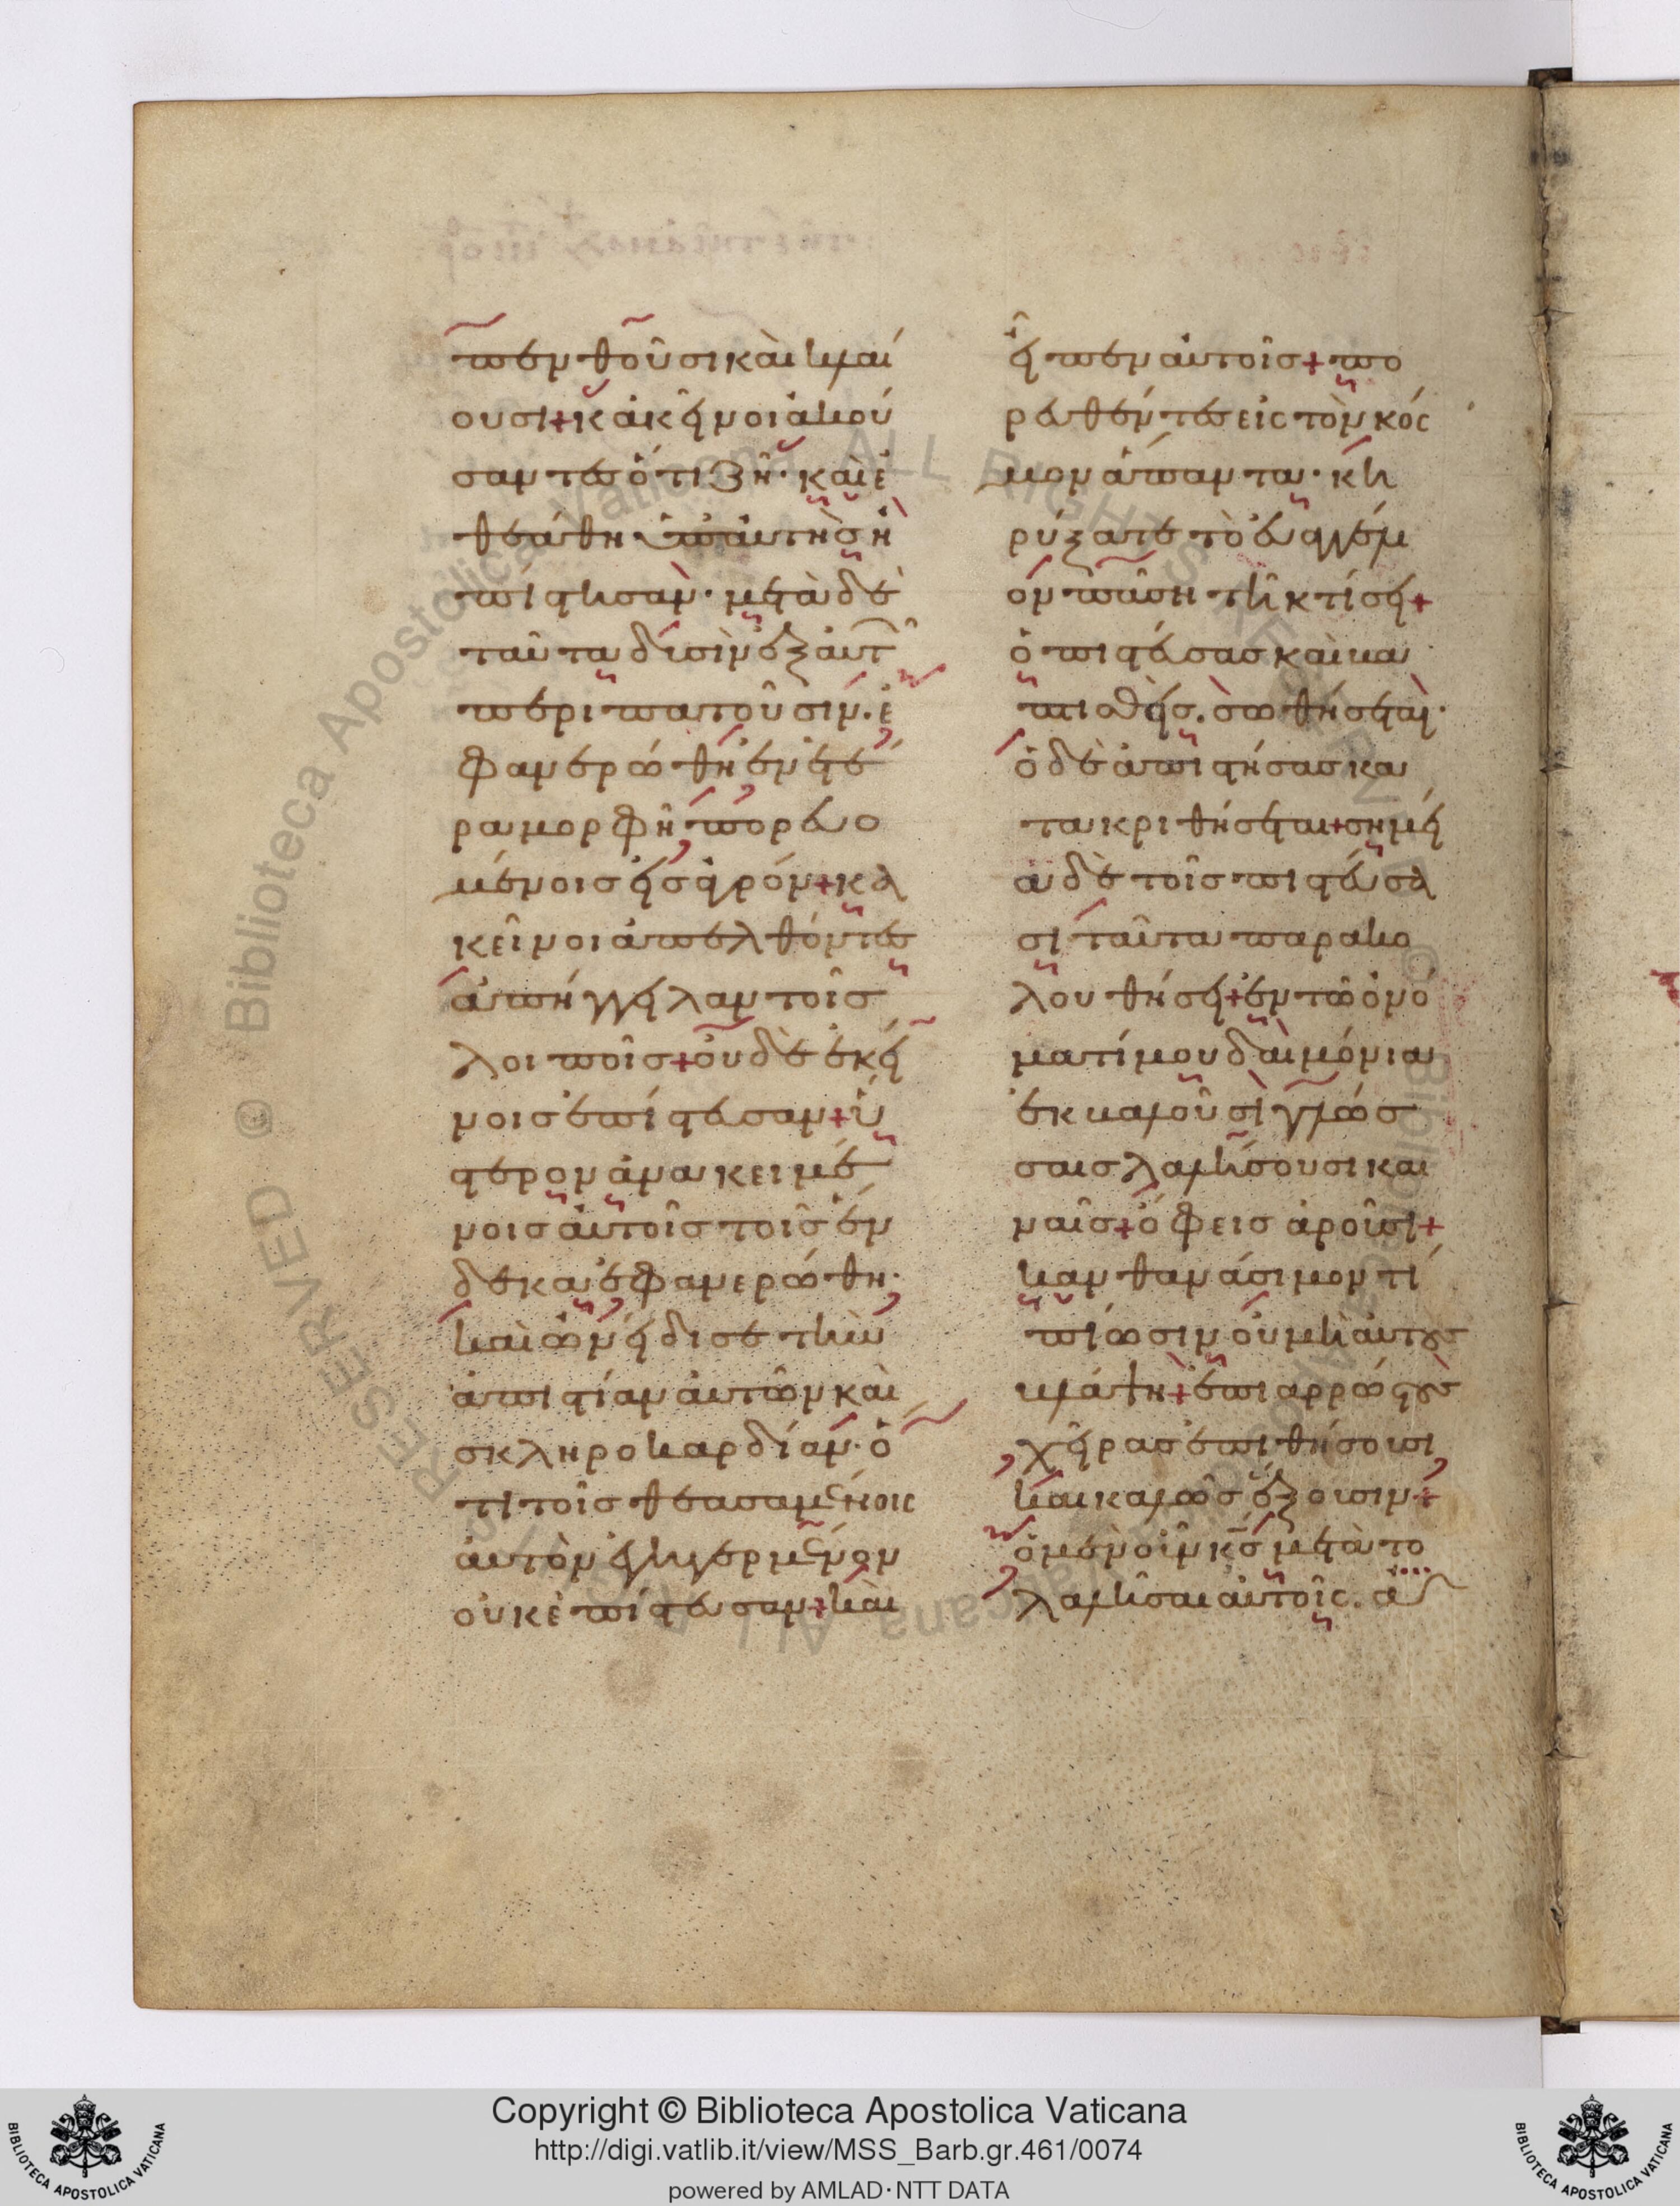 πενθοῦσι καὶ κλαί
ουσι + κἀκεῖνοι ἀκού
σαντες ὅτι ζῆ · καὶ ἐ
θεάθη ὑπ' αὐτῆς ἠ
πίστησαν · μετὰ δὲ
ταῦτα δυσὶν ἐξ αὐτ
περιπατοῦσιν · ἐ
φανερώθη ἐν ἑτέ
ρα μορφῆ πορευο
μένοις εἰς ἀγρόν + κἀ
κεῖνοι ἀπελθόντες
ἀπήγγειλαν τοῖς
λοιποῖς + οὐδὲ ἐκεί
νοις ἐπίστευσαν + ὕ
στερον ἀνακειμέ
νοις αὐτοῖς τοῖς ἕν
δεκα ἐφανερώθη ·
καὶ ὠνείδισε τὴν
ἀπιστίαν αὐτῶν καὶ
σκληροκαρδίαν · ὅ
τι τοῖς θεασαμένοις
αὐτὸν ἐγηγερμένον
οὐκ ἐπίστευσαν + καὶ
εἶπεν αὐτοῖς + πο
ρευθέντες εἰς τὸν κόσ
μον ἅπαντα · κη
ρύξατε τὸ εὐαγγέλι
ον πάση τῆ κτίσει +
ὁ πιστεύσας καὶ βα
πτισθεὶς · σωθήσεται ·
ὁ δὲ ἀπιστήσας κα
τακριθήσεται + σημεῖ
α δὲ τοῖς πιστεύσα
σι ταῦτα παρακο
λουθήσει + ἐν τῶ ὀνό
ματί μου δαιμόνια
ἐκβαλοῦσι γλώσ
σαις λαλήσουσι και
ναῖς + ὄφεις ἀροῦσι +
κἂν θανάσιμόν τι
πίωσιν οὐ μὴ αὐτοὺς
βλάψη + ἐπὶ ἀρρώστους
χεῖρας ἐπιθήσουσι
καὶ καλῶς ἕξουσιν +
ὁ μὲν οὖν κς μετὰ τὸ
λαλῆσαι αὐτοῖς · ἀ
Copyright © Biblioteca Apostolica Vaticana
http://digi.vatlib.it/view/MSS_Barb.gr.461/0074
powered by AMLAD·NTT DATA